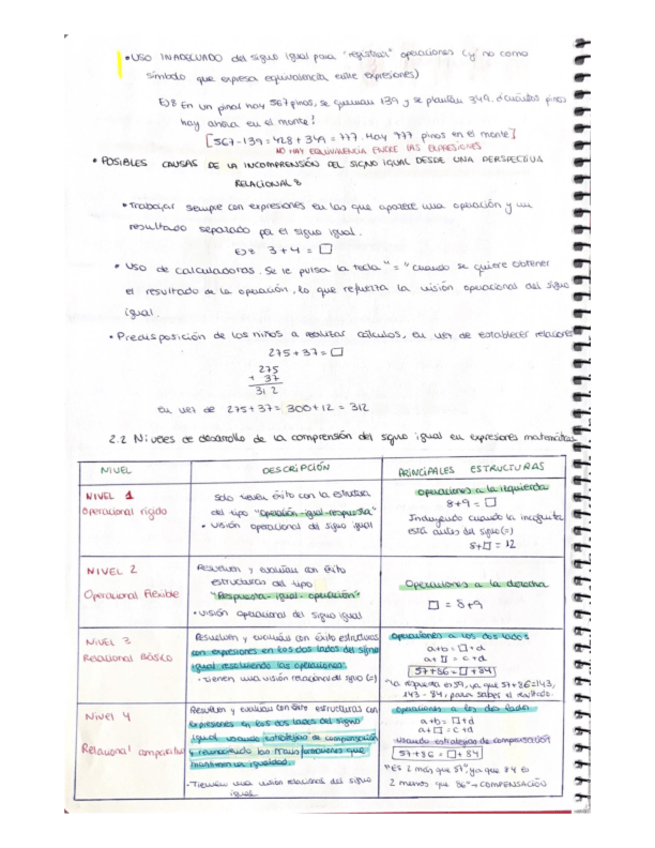 • USO INADECUADO del signo igual para "registrar" operaciones (y no como
símbolo que expresa equivalencia entre expresiones)
Ej: En un pinar hay 567 pinos, se queman 139 y se plantan 349. ¿Cuántos pinos
hay ahora en el monte?
[567-139 = 428 + 349 = 777. Hay 777 pinos en el monte]
NO HAY EQUIVALENCIA ENTRE LAS EXPRESIONES
• POSIBLES CAUSAS DE LA INCOMPRENSIÓN DEL SIGNO IGUAL DESDE UNA PERSPECTIVA
RELACIONAL:
• Trabajar siempre con expresiones en las que aparece una operación y un
resultado separado por el signo igual.
Ej: 3 + 4 = □
• Uso de calculadoras. Se le pulsa la tecla "=" cuando se quiere obtener
el resultado de la operación, lo que refuerza la visión operacional del signo
igual.
• Predisposición de los niños a realizar cálculos, en vez de establecer relaciones
275 + 37 = □
275
+ 37
312
en vez de 275 + 37 = 300 + 12 = 312
2.2 Niveles de desarrollo de la comprensión del signo igual en expresiones matemáticas
NIVEL DESCRIPCIÓN PRINCIPALES ESTRUCTURAS
NIVEL 1
Operacional rígido
Solo tienen éxito con la estructura
del tipo "Operación-igual-respuesta"
• Visión operacional del signo igual
Operaciones a la izquierda
8+9 = □
Incluyendo cuando la incógnita
está antes del signo (=)
8+□ = 12
NIVEL 2
Operacional flexible
Resuelven y evalúan con éxito
estructuras del tipo
"Respuesta-igual-operación"
• Visión operacional del signo igual
Operaciones a la derecha
□ = 8+9
NIVEL 3
Relacional BÁSICO
Resuelven y evalúan con éxito estructuras
con expresiones en los dos lados del signo
igual resolviendo las operaciones.
• Tienen una visión relacional del signo (=)
Operaciones a los dos lados
a+b = □+d
a+□ = c+d
57+86 = □+84
"la respuesta es 59, ya que 57+86=143,
143-84, para saber el resultado.
NIVEL 4
Relacional comparativo
Resuelven y evalúan con éxito estructuras con
expresiones en los dos lados del signo
igual usando estrategias de compensación
y reconociendo las transformaciones que
mantienen la igualdad.
- Tienen una visión relacional del signo
igual
Operaciones a los dos lados
a+b = □+d
a+□ = c+d
usando estrategias de compensación
57+86 = □+84
"Es 2 más que 57", ya que 84 es
2 menos que 86" → COMPENSACIÓN